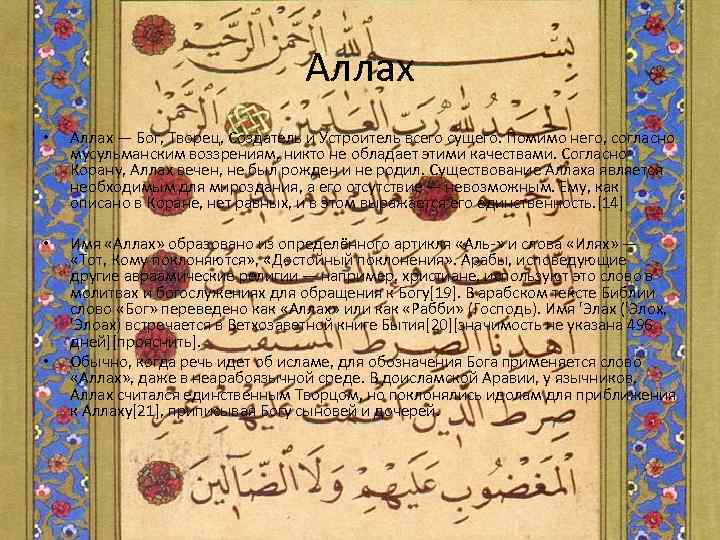 بِسْمِ اللهِ الرَّحْمٰنِ الرَّحِيمِ
Аллах
الْحَمْدُ لِلّٰهِ رَبِّ الْعَالَمِينَ الرَّحْمٰنِ
• Аллах — Бог, Творец, Создатель и Устроитель всего сущего. Помимо него, согласно
мусульманским воззрениям, никто не обладает этими качествами. Согласно
Корану, Аллах вечен, не был рожден и не родил. Существование Аллаха является
необходимым для мироздания, а его отсутствие — невозможным. Ему, как
описано в Коране, нет равных, и в этом выражается его единственность.[14]
• Имя «Аллах» образовано из определённого артикля «Аль-» и слова «Илях» —
«Тот, Кому поклоняются», «Достойный поклонения». Арабы, исповедующие
другие авраамические религии — например, христиане, используют это слово в
молитвах и богослужениях для обращения к Богу[19]. В арабском тексте Библии
слово «Бог» переведено как «Аллах» или как «Рабби» (Господь). Имя 'Элах ('Элох,
'Элоах) встречается в Ветхозаветной книге Бытия[20][значимость не указана 496
дней][прояснить].
• Обычно, когда речь идет об исламе, для обозначения Бога применяется слово
«Аллах», даже в неарабоязычной среде. В доисламской Аравии, у язычников,
Аллах считался единственным Творцом, но поклонялись идолам для приближения
к Аллаху[21], приписывая Богу сыновей и дочерей.
صِرَاطَ الَّذِينَ أَنْعَمْتَ عَلَيْهِمْ غَيْرِ
الْمَغْضُوبِ عَلَيْهِمْ وَلَا الضَّالِّينَ